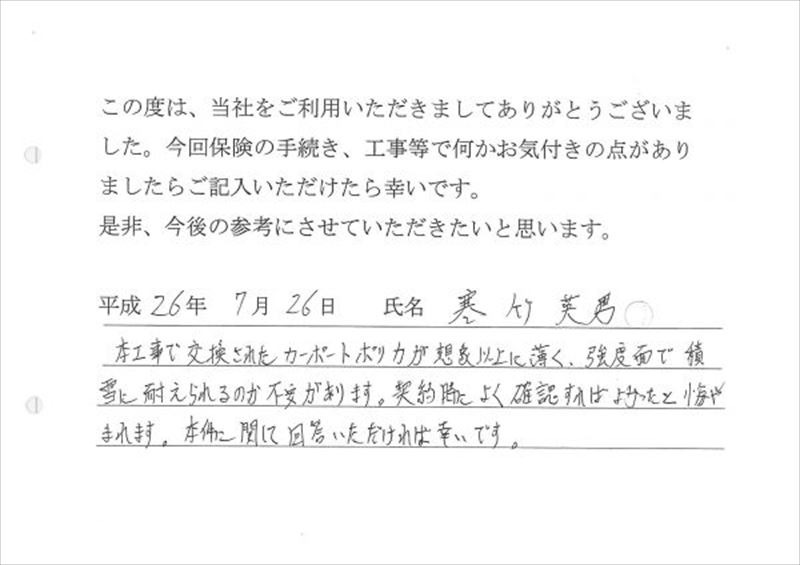 この度は、当社をご利用いただきましてありがとうございま
した。今回保険の手続き、工事等で何かお気付きの点があり
ましたらご記入いただけたら幸いです。
是非、今後の参考にさせていただきたいと思います。
平成 26年 7月 26日 氏名 寒竹 英男
本工事で交換されたカーポートポリカが想象以上に薄く、強度面で積
雪に耐えられるのか不安があります。契約時によく確認すればよかったと悔や
まれます。本件に関して回答いただければ幸いです。